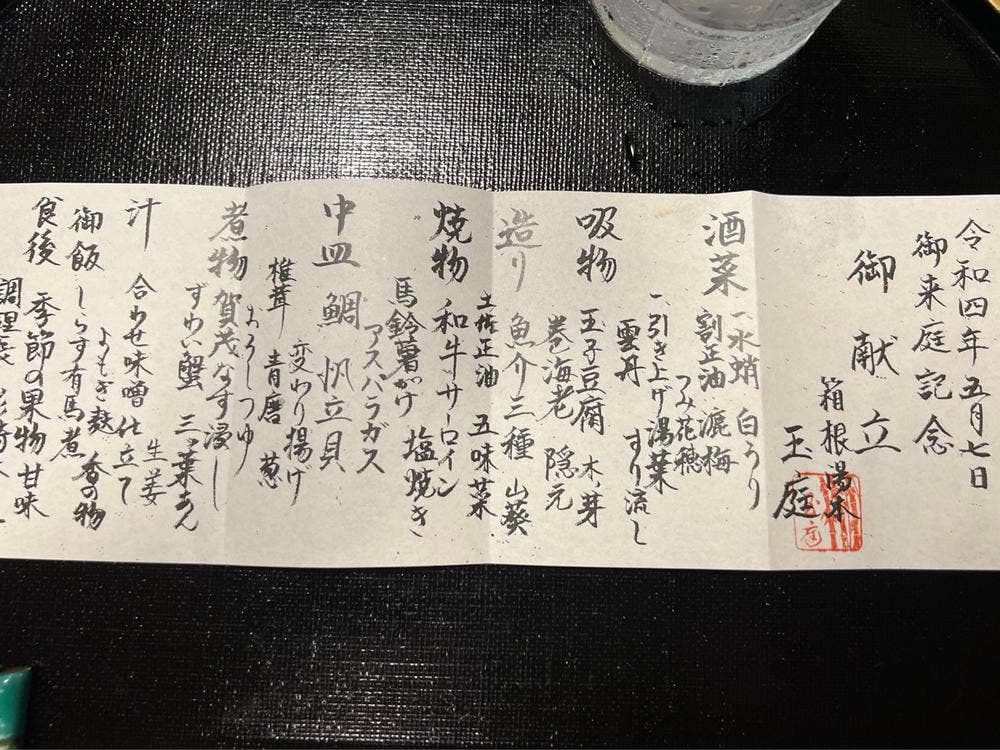 令和四年五月七日
御来庭記念
御献立
箱根湯本
玉庭
酒菜 一、水蛸 白うり
割正油 漉梅
つみ花穂
一、引き上げ湯葉
雲丹 すり流し
吸物 玉子豆腐 木ノ芽
巻海老 隠元
造り 魚介三種 山葵
土佐正油 五味菜
焼物 和牛サーロイン
馬鈴薯がけ 塩焼き
アスパラガス
中皿 鯛 帆立貝
変わり揚げ
椎茸 青唐 葱
おろしつゆ
煮物 賀茂なす浸し
ずわい蟹 三つ葉あん
生姜
汁 合わせ味噌仕立て
よもぎ麸 香の物
御飯 しらす有馬煮
食後 季節の果物 甘味
調理長